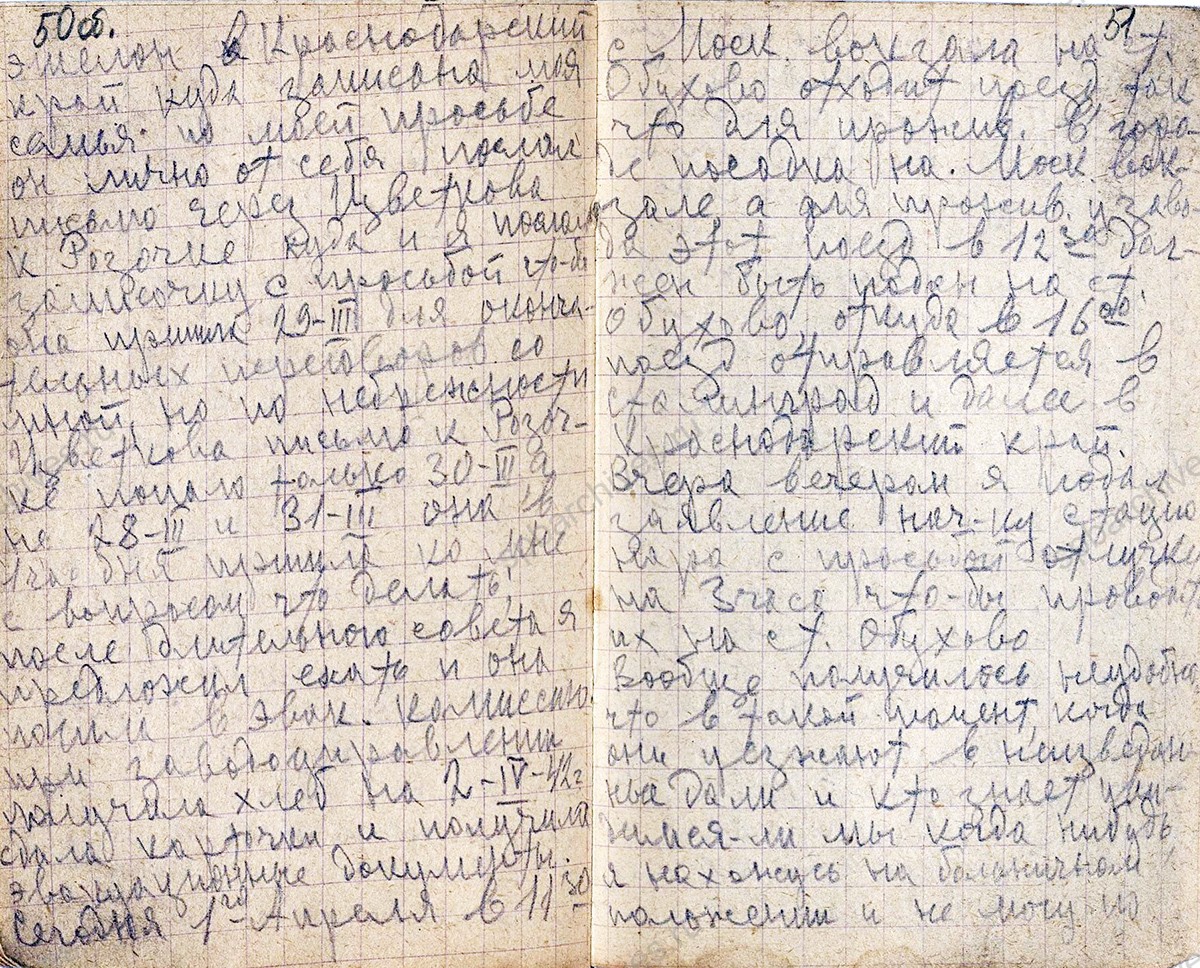 50об.
эшелон в Краснодарский
край куда записана моя
семья. по моей просьбе
он лично от себя послал
письмо через Цветкова
к Розочке куда и я послал
записочку с просьбой что-бы
она пришла 29-III для оконча-
тельных переговоров со
мной, но по небрежности
Цветкова письмо к Розоч-
ке попало только 30-III а
не 28-III и 31-III она в
1 час дня пришла ко мне
с вопросом что делать,
после длительного совета я
предложил ехать и она
пошла в эвак. комиссию
при заводоуправлении
получила хлеб на 2-IV-42г
сдала карточки и получила
эвакуационные документы.
Сегодня 1го Апреля в 11 30
51
с Моск. вокзала на ст.
Обухово отходит поезд так
что для прожив. в горо-
де посадка на Моск. вок-
зале, а для прожив. у заво-
да этот поезд в 12 30 дол-
жен быть подан на ст.
Обухово, откуда в 16 00
поезд отправляется в
Сталинград и далее в
Краснодарский край.
Вчера вечером я подал
заявление нач-ку стацио
нара с просьбой отлучке
на 3 часа что-бы проводить
их на ст. Обухово
Вообще получилось неудобно
что в такой момент, когда
они уезжают в неизведан-
ные дали и кто знает уви-
димся-ли мы когда нибудь
я нахожусь на больничном
положении и не могу по